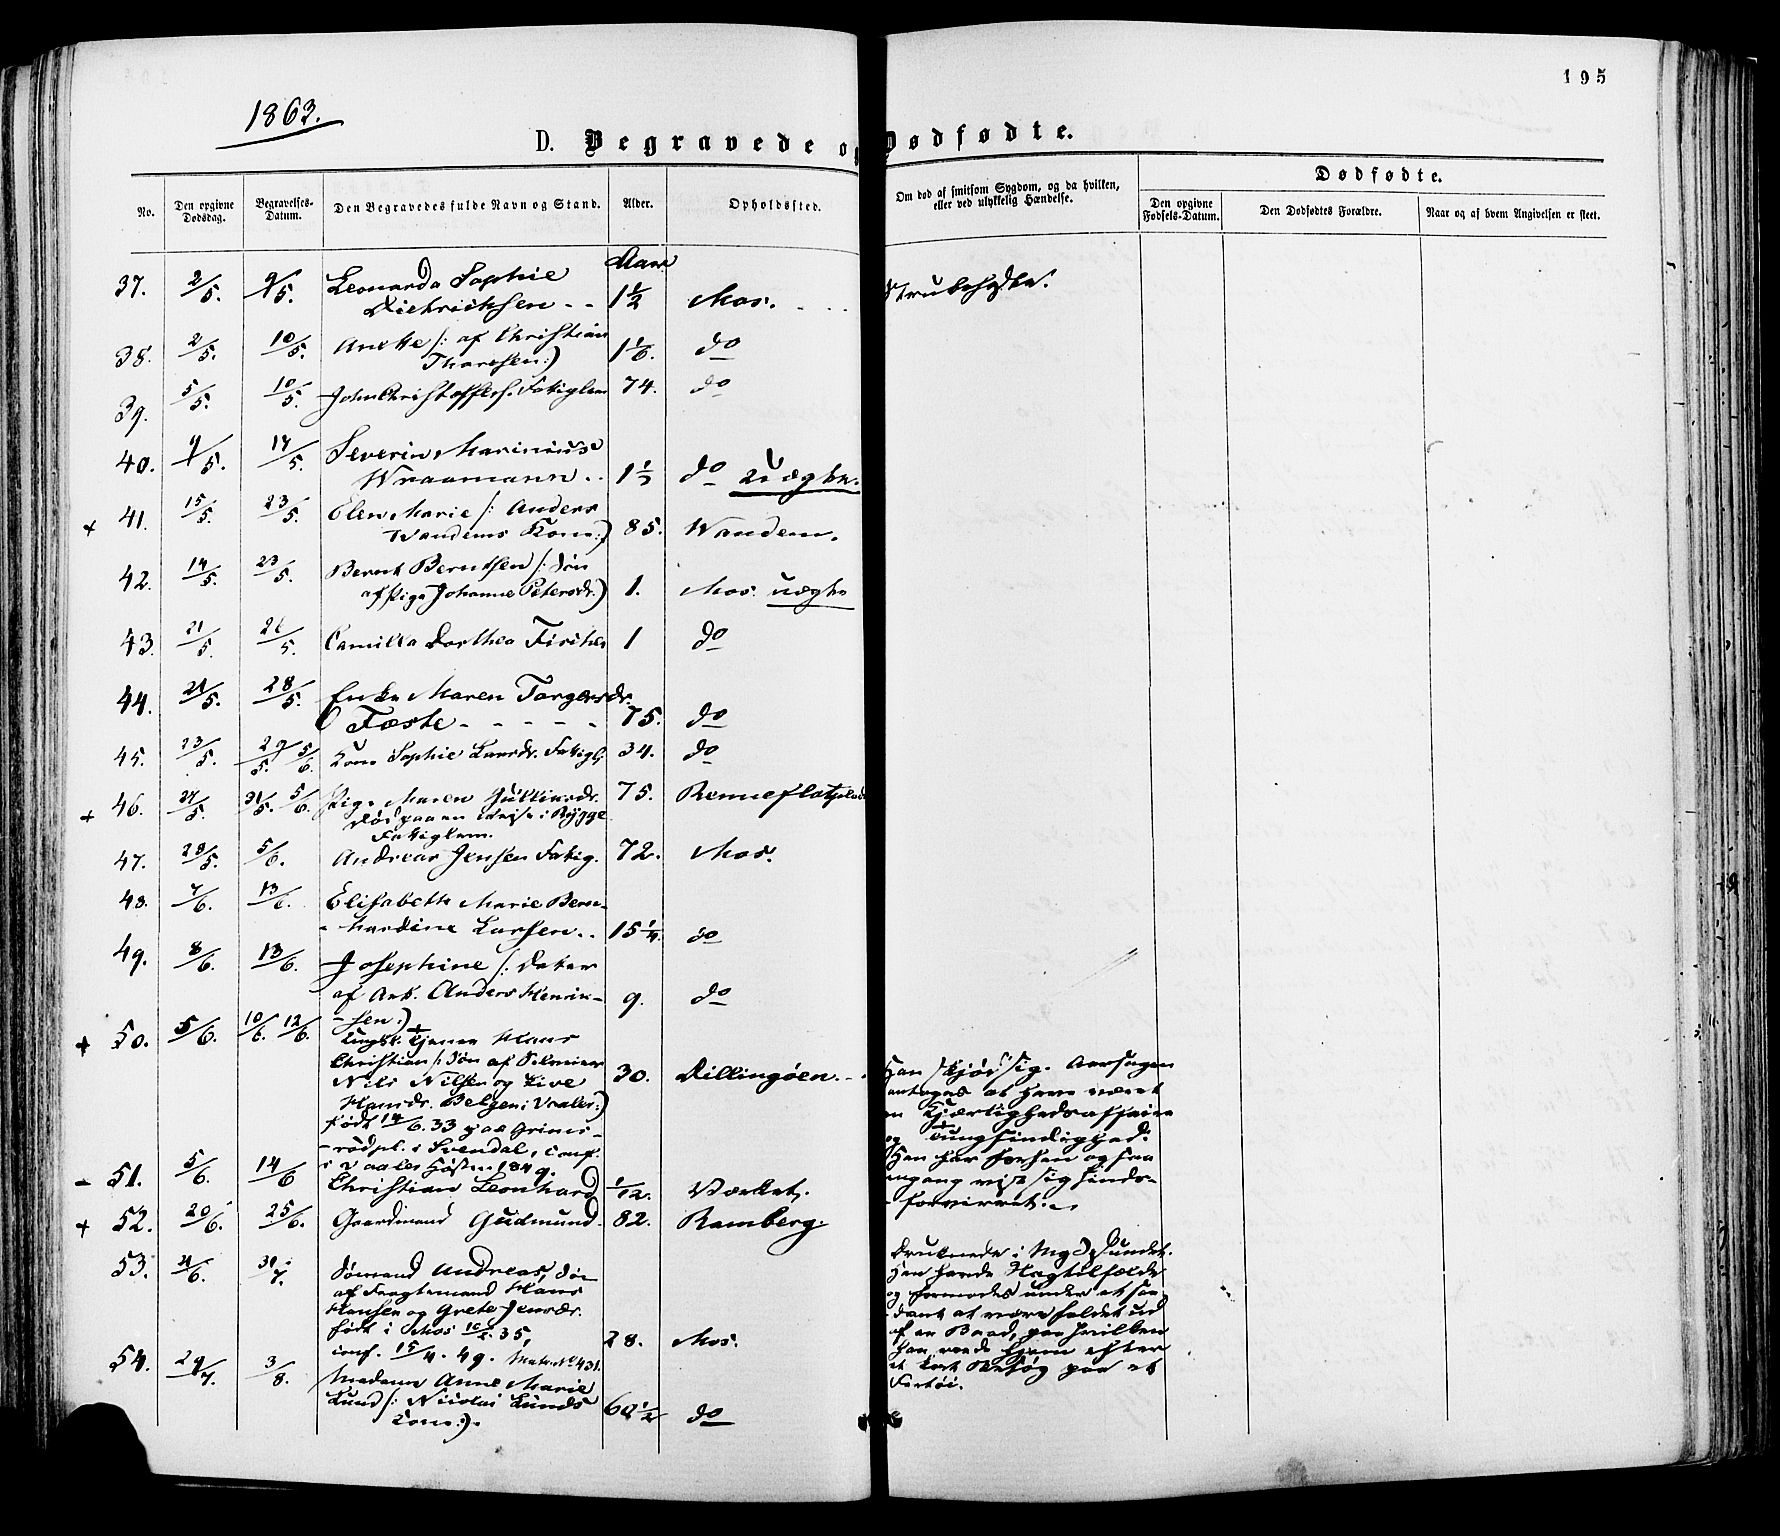 195
1863.
D. Begravede og Dødfødte.
No.
Den opgivne Dødsdag.
Begravelses-Datum.
Den Begravedes fulde Navn og Stand.
Alder.
Opholdssted.
Om død af smitsom Sygdom, og da hvilken, eller ved ulykkelig Hændelse.
Dødfødte.
Den opgivne Fødsels-Datum.
Den Dødfødtes Forældre.
Naar og af hvem Angivelsen er skeet.
Aar
37. 2/5. 9/5. Leonarda Sophie
Dietrichsen - - 1½ Mos.
Strubehoste.
38. 2/5. 10/5. Anette /: af Christian
Thoresen:) 1 1/6. do
39. 5/5. 10/5. John Christoffers. Fattiglem 74. do
40. 9/5. 17/5. Severin Marinius
Wraamann - - do uægte.
+ 41. 15/5. 23/5. Elen Marie /: Anders
Wandems Kone:) 85. Wandem.
42. 14/5. 23/5. Bernt Berntsen /: Søn
af Pige Johanne Petersdr.) 1. Mos. uægte
43. 21/5. 26/5. Camilla Dorthea Fischer 1 do
44. 21/5. 28/5. Enke Maren Torgersdr.
Fæste - - - - - 75. do
45. 23/5. 29/5. 5/6. Kone Sophie Larsdr. Fattigl. 34. do
+ 46. 27/5. 31/5. 5/6. Pige Maren Gulliksdr. 75. Renneflotplads
død paa en Reise i Rygge
Fattiglem.
47. 28/5. 5/6. Andreas Jensen Fattig. 72. Mos.
48. 7/6. 13/6. Elisabeth Marie Bern-
hardine Larsen - - 15¼. do
49. 8/6. 13/6. Josephine /: Datter
af Arb. Anders Henrik-
sen:) 9. do
+ 50. 5/6. 10/6. 12/6. Ungk. Tjener Hans
Christian /: Søn af Selveier
Nils Nilsen og Live
Hansdr. Belgen i Vaaler:) 30. Dillingøen. - -
født 14/6. 33 paa Grims-
rødpl. i Svendal, conf.
i Vaaler Høsten 1849.
Han skjød sig. Aarsagen
antages at have været
en Kjærlighedsaffaire
og Tungsindighed.
Han har forhen ogsaa
engang vist sig Sinds-
forvirret. -
- 51. 5/6. 14/6 Christian Leonhard 1/12. Værket.
+ 52. 20/6. 25/6. Gaardmand Gudmund 82. Ramberg.
53. 21/6. 31/7. Sømand Andreas, Søn
af Fragtemand Hans
Hansen og Grete Jensdr.
født i Mos 10/2. 35,
conf. 15/4. 49. Matr. No 431. 28. Mos.
Druknede i Mos Sundet.
Han havde Slagtilfælde
og formodes under et saa-
dant at være faldet ud
af en Baad, paa hvilken
han roede hjem efter
et kort Besøg paa et
Fartøi.
54. 29/7. 3/8. Madame Anne Marie
Lund /: Nicolai Lunds
Kone:). 60½ do